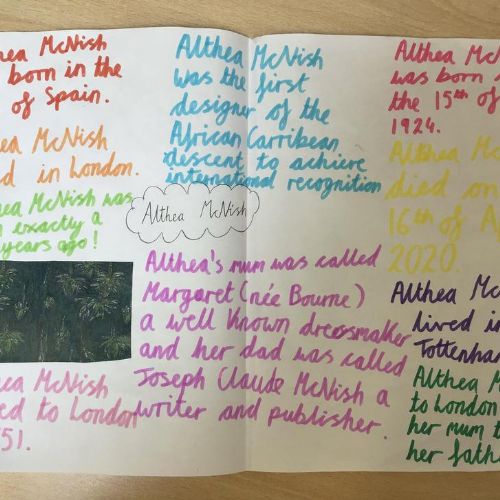 hea McNish
born in the
of Spain.
ea McNish
d in London.
hea McNish was
n exactly a
years ago!
ea McNish
ed to London
51.
Althea McNish
was the first
designer of the
African Carribean
descent to achieve
international recognition
Althea McNish
Althea's mum was called
Margaret (née Bourne)
a well known dressmaker
and her dad was called
Joseph Claude McNish a
writer and publisher.
Althea McN
was born
the 15th of
1924.
Althea Mc
died on
16th of A
2020.
Althea Mc
lived in
Tottenha
Althea M
to London
her mum t
her fath